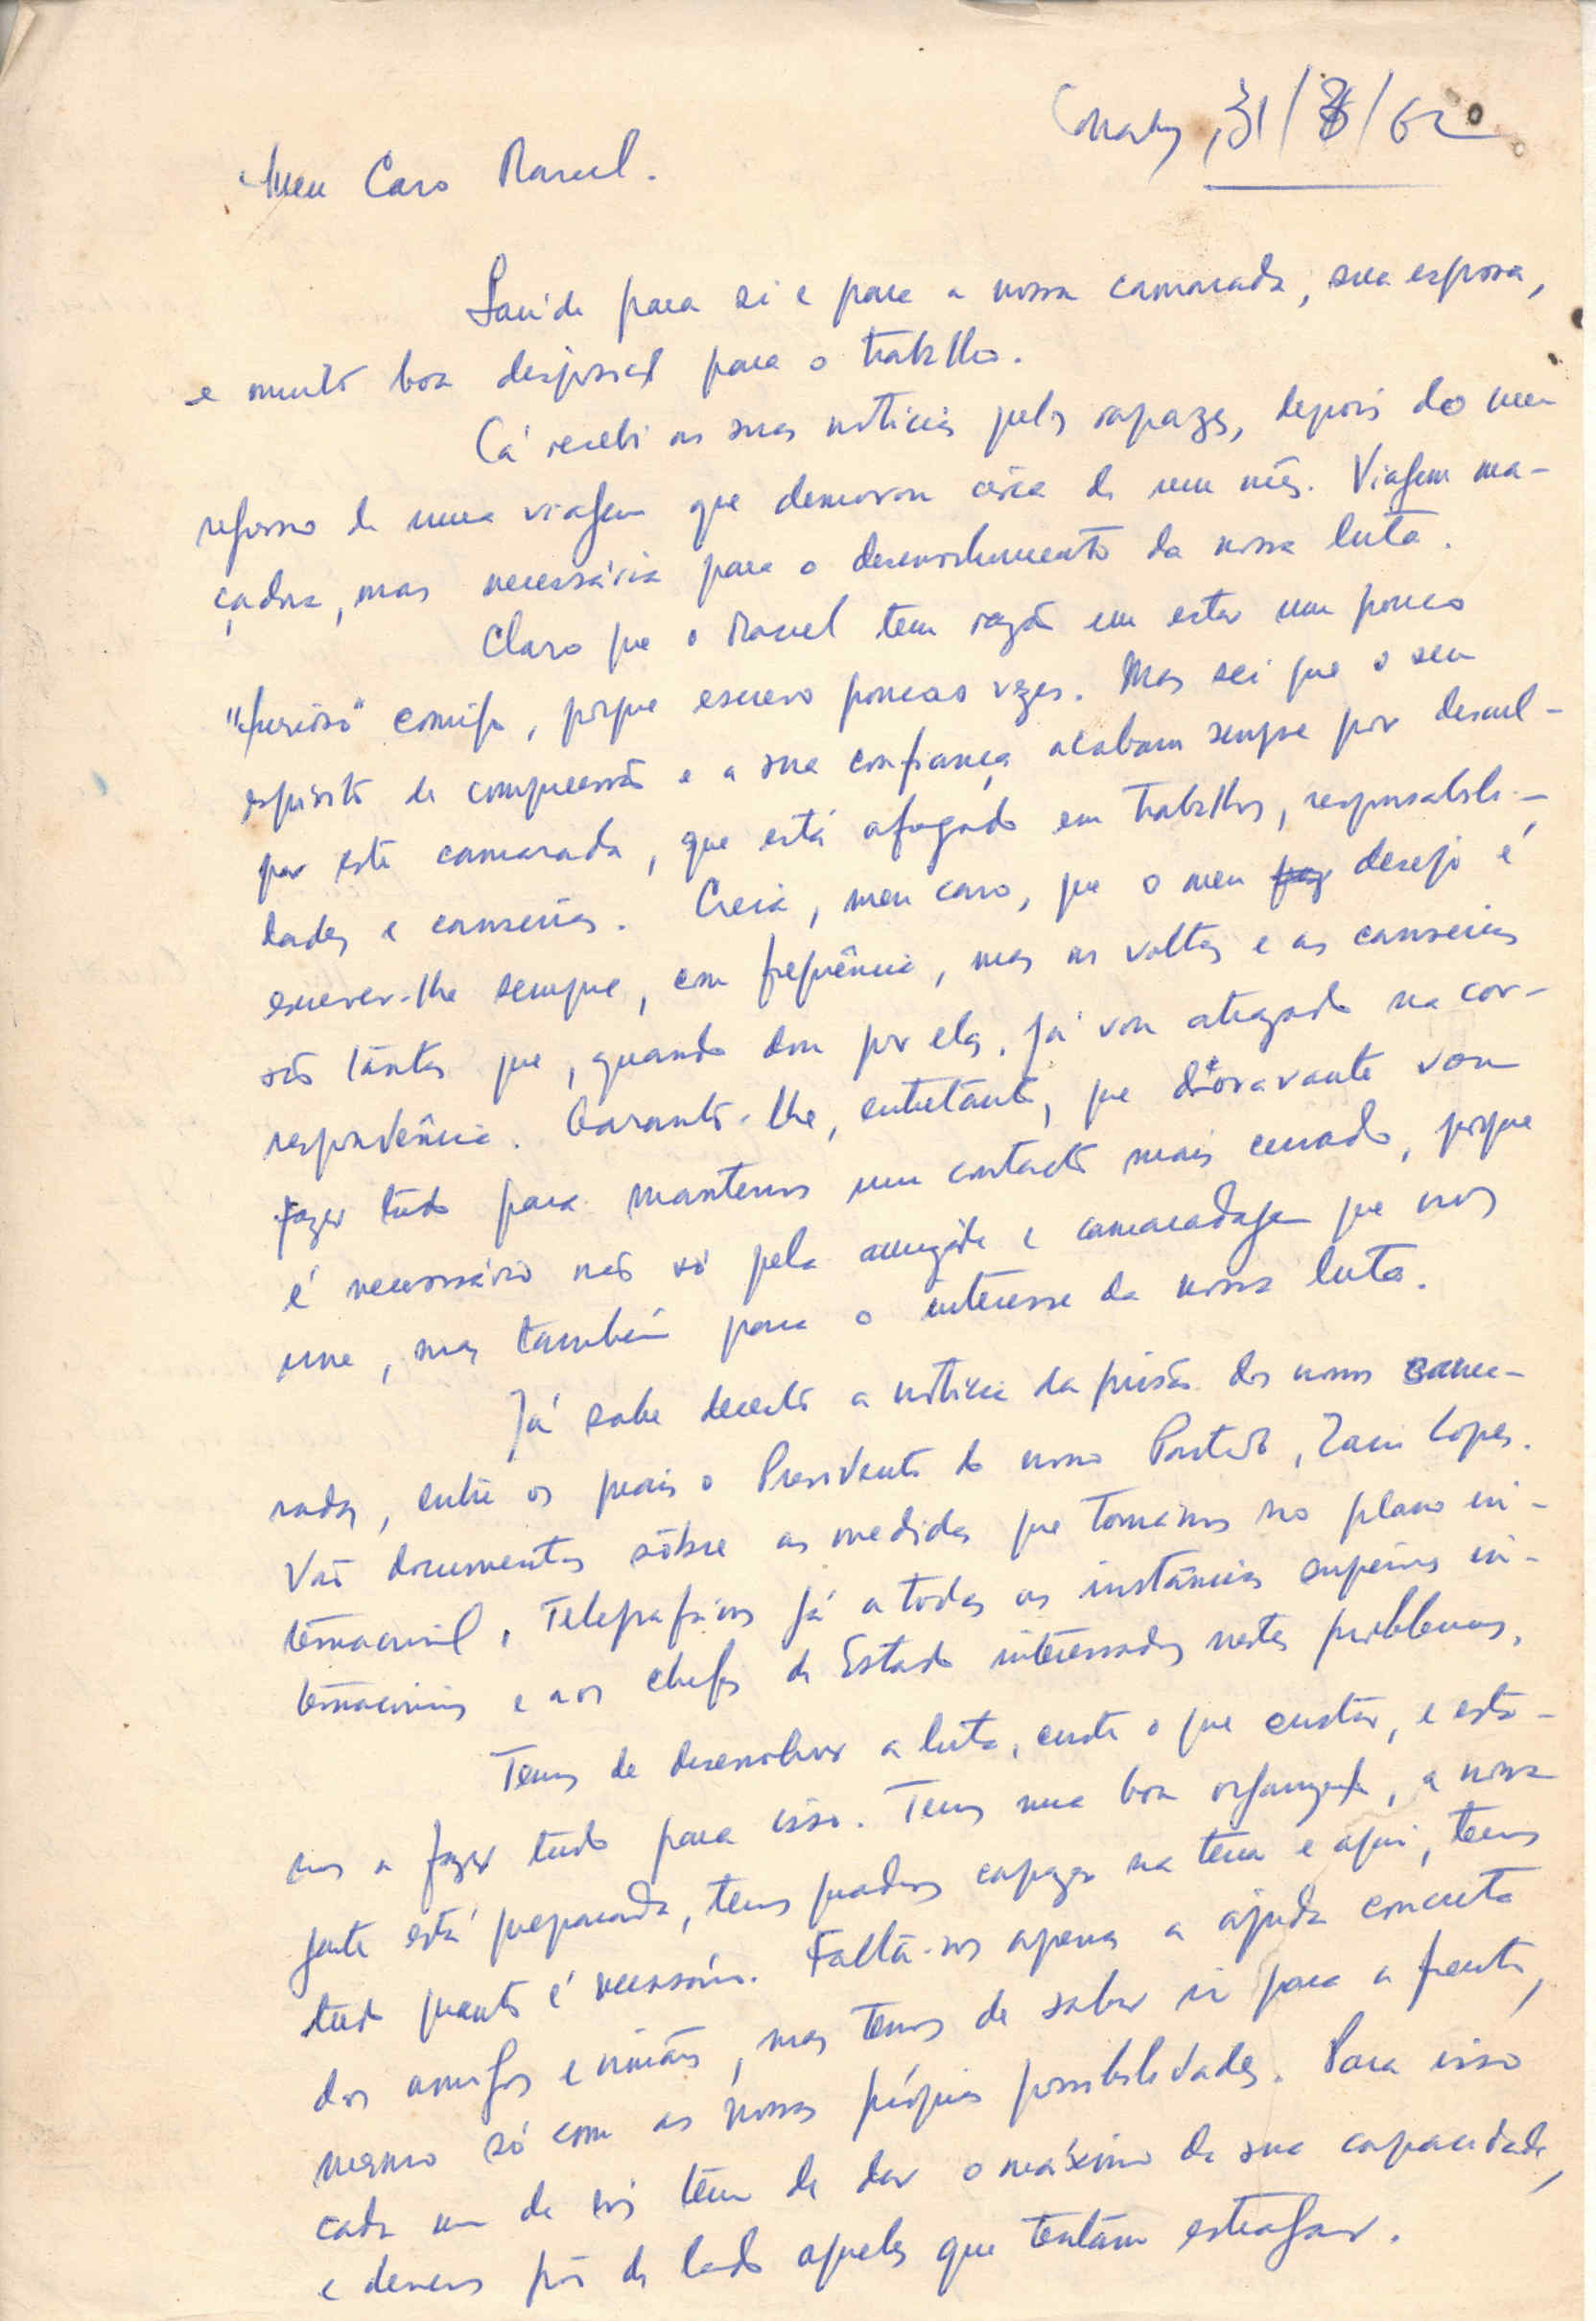 Conakry, 31/3/62
Meu Caro Marcel.
Saúde para si e para a nossa camarada, sua esposa,
e muito boa disposição para o trabalho.
Cá recebi as suas notícias pelos rapazes, depois do meu
regresso de uma viagem que demorou cêrca de um mês. Viagem ma-
çadora, mas necessária para o desenvolvimento da nossa luta.
Claro que o Marcel tem razão em estar um pouco
"furioso" comigo, porque escrevo poucas vezes. Mas sei que o seu
espírito de compreensão e a sua confiança acabam sempre por descul-
par este camarada, que está afogado em trabalhos, responsabili-
dades e canseiras. Creia, meu caro, que o meu desejo é
escrever-lhe sempre, com frequência, mas as voltas e as canseiras
são tantas que, quando dou por elas, já vou atrazado na cor-
respondência. Garanto-lhe, entretanto, que d'oravante vou
fazer tudo para mantermos um contacto mais cerrado, porque
é necessário não só pela amizade e camaradagem que nos
une, mas também para o interesse da nossa luta.
Já sabe decerto a notícia da prisão dos nossos cama-
radas, entre os quais o Presidente do nosso Partido, Zain Lopes.
Vão documentos sôbre as medidas que tomámos no plano in-
ternacional. Telegrafámos já a todas as instâncias superiores in-
ternacionais e aos chefes de Estado interessados nestes problemas.
Temos de desenvolver a luta, custe o que custar, e esta-
mos a fazer tudo para isso. Temos uma boa organização, a nossa
gente está preparada, temos quadros capazes na terra e aqui, temos
tudo quanto é necessário. Falta-nos apenas a ajuda concreta
dos amigos e irmãos, mas temos de saber ir para a frente,
mesmo só com as nossas próprias possibilidades. Para isso
cada um de nós tem de dar o máximo da sua capacidade,
e devemos pôr de lado aqueles que tentam estragar.